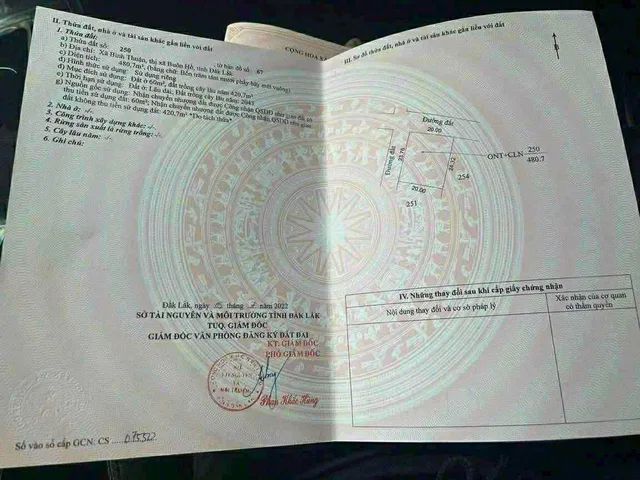 II. Thửa đất, nhà ở và tài sản khác gắn liền với đất
1. Thửa đất:
a) Thửa đất số: 250 tờ bản đồ số: 87
b) Địa chỉ: Xã Bình Thuận, thị xã Buôn Hồ, tỉnh Đắk Lắk
c) Diện tích: 480,7m² (bằng chữ: Bốn trăm tám mươi phẩy bảy mét vuông)
d) Hình thức sử dụng: Sử dụng riêng
đ) Mục đích sử dụng: Đất ở 60m², đất trồng cây lâu năm 420,7m²
e) Thời hạn sử dụng: Đất ở: Lâu dài; Đất trồng cây lâu năm:
g) Nguồn gốc sử dụng: Nhận chuyển nhượng đất được Công nhận QSDĐ như giao đất có
thu tiền sử dụng đất: 60m²; Nhận chuyển nhượng đất được Công nhận QSDĐ như giao
đất không thu tiền sử dụng đất: 420,7m² *Do tách thửa*
2. Nhà ở: -/-
3. Công trình xây dựng khác: -/-
4. Rừng sản xuất là rừng trồng: -/-
5. Cây lâu năm: -/-
6. Ghi chú:
Đắk Lắk, ngày tháng năm 2022
SỞ TÀI NGUYÊN VÀ MÔI TRƯỜNG TỈNH ĐẮK LẮK
TUQ. GIÁM ĐỐC
GIÁM ĐỐC VĂN PHÒNG ĐĂNG KÝ ĐẤT ĐAI
KT. GIÁM ĐỐC
PHÓ GIÁM ĐỐC
Phan Khắc Hùng
Số vào sổ cấp GCN: CS
CỘNG HÒA
III. Sơ đồ thửa đất, nhà ở và tài sản khác gắn liền với đất
Đường đất
20.00
Đường đất
23.76
24.32
20.00
251
254
ONT+CLN 250
480.7
IV. Những thay đổi sau khi cấp giấy chứng nhận
Nội dung thay đổi và cơ sở pháp lý
Xác nhận của cơ quan
có thẩm quyền